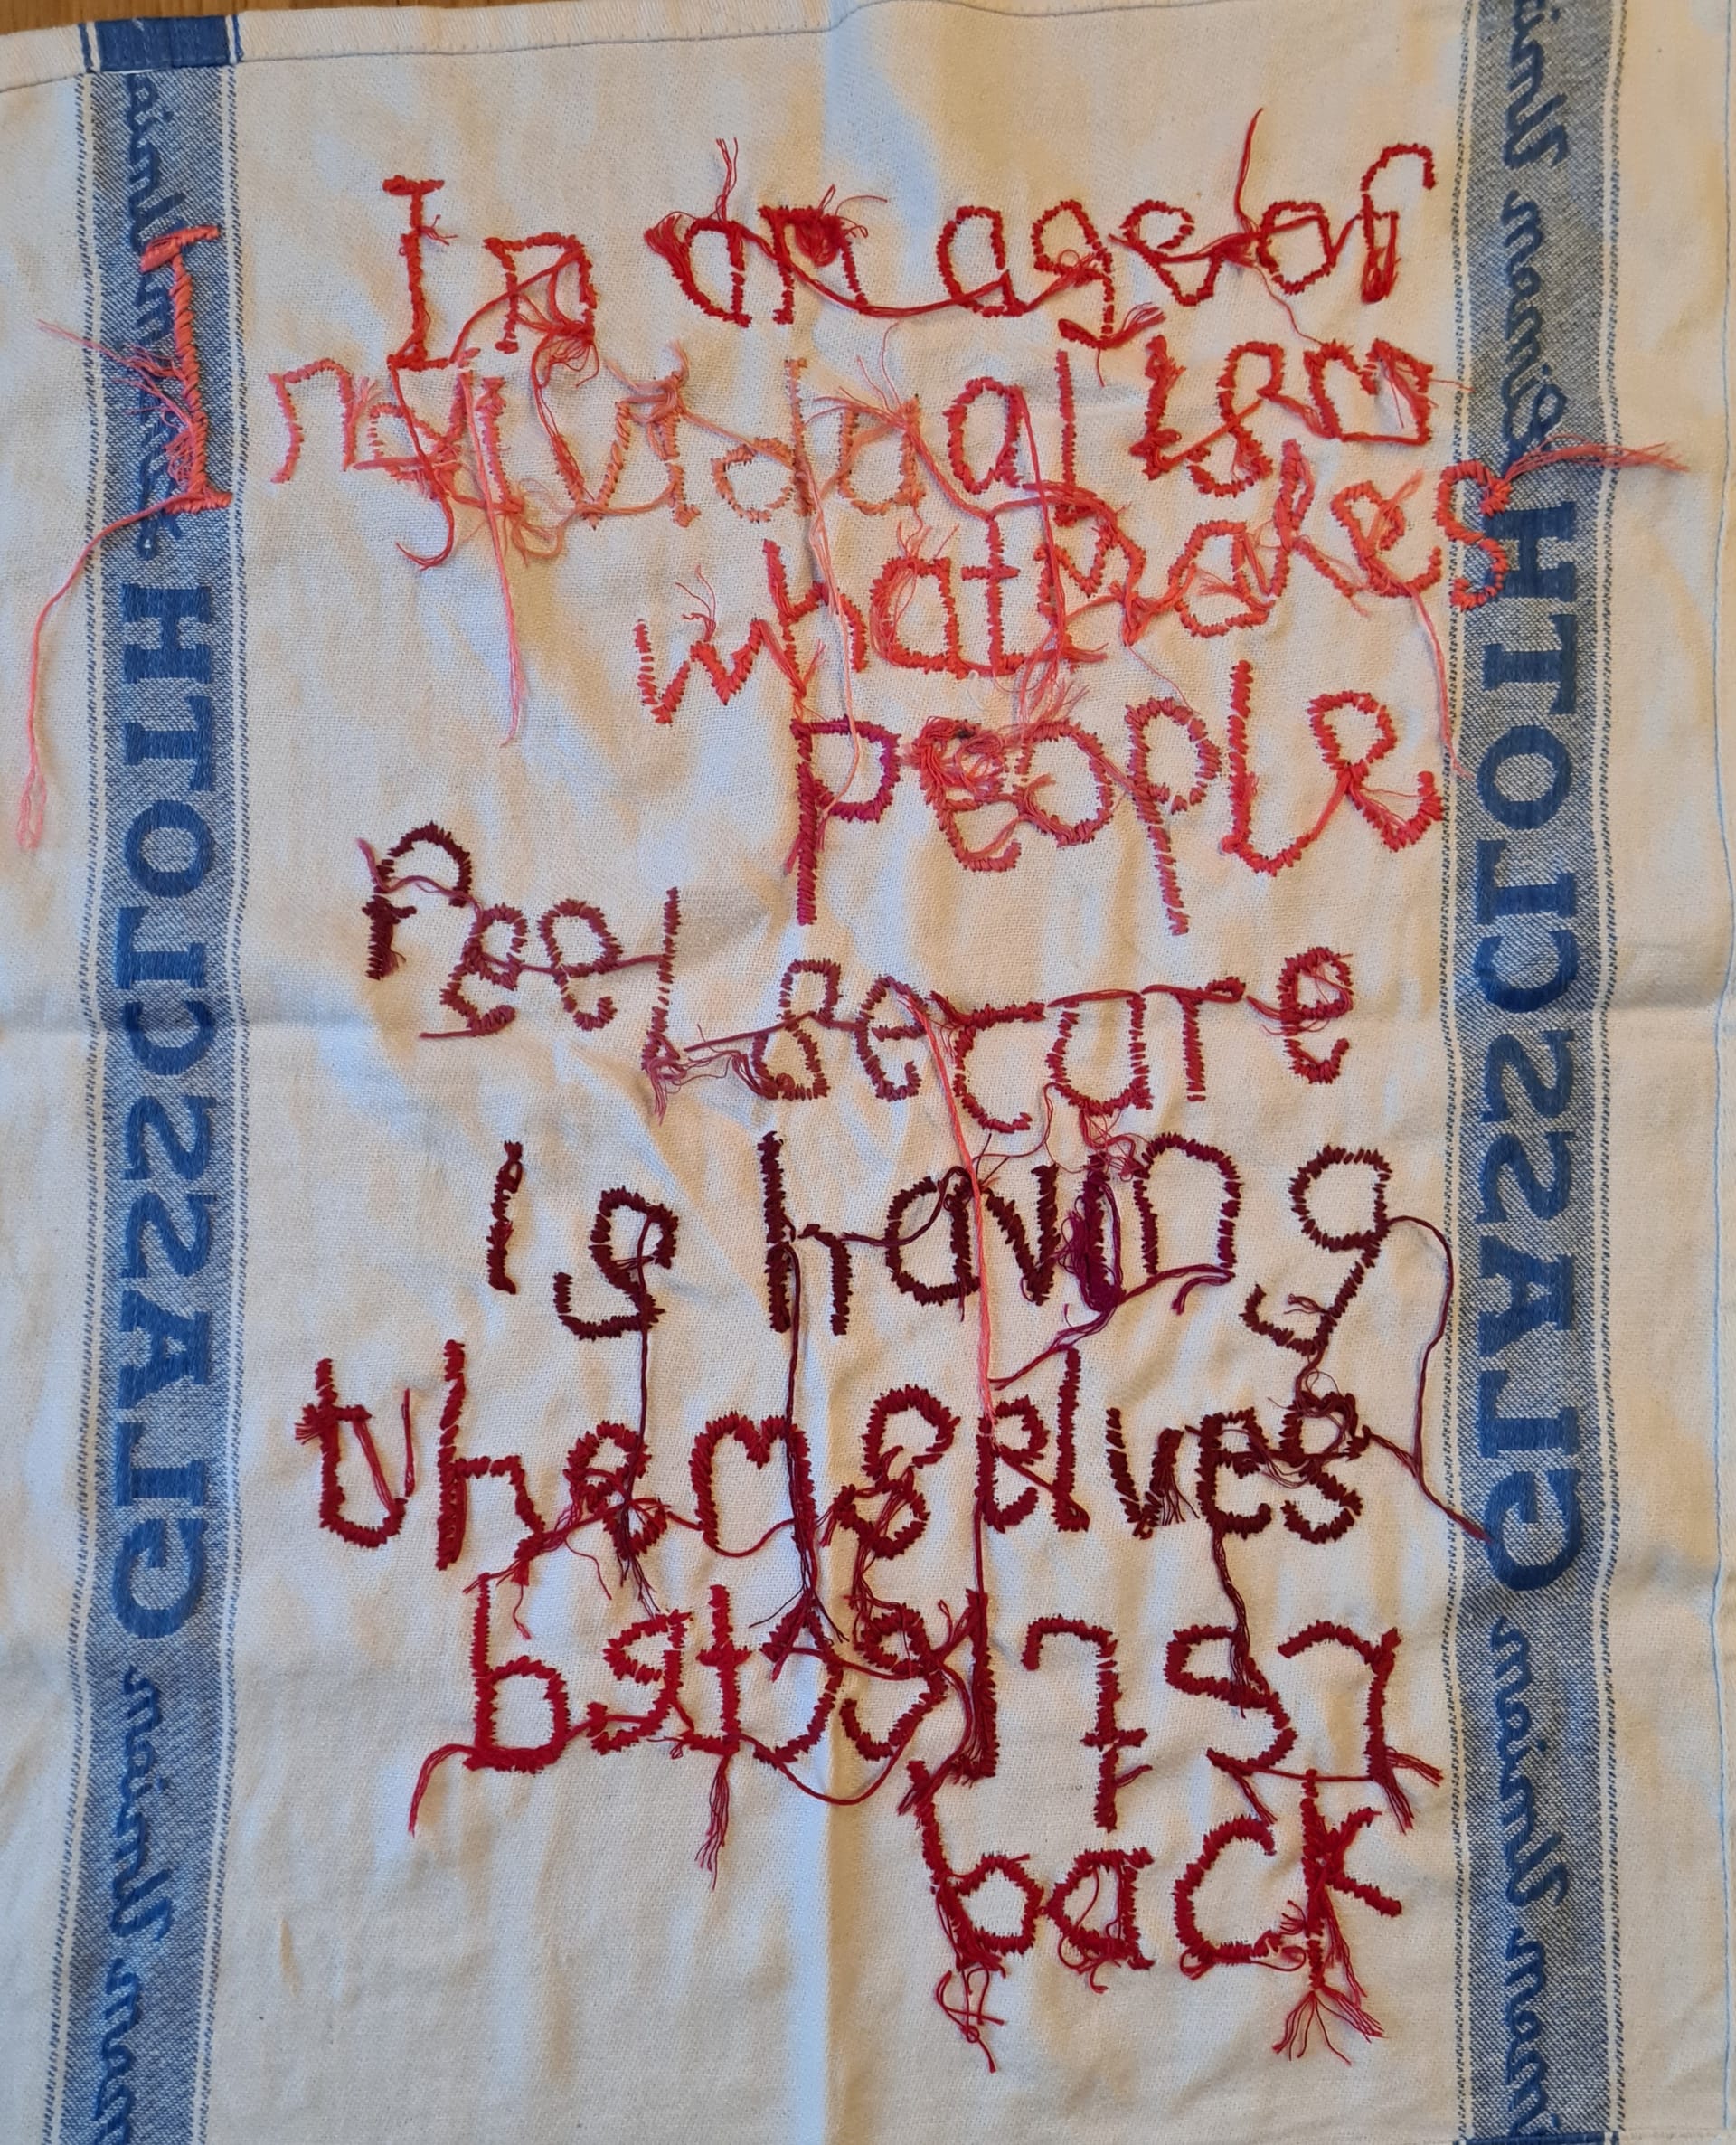 In an age of
Individualism
what makes
people
feel secure
is having
themselves
reflected
back
GLASS CLOTH
GLASS CLOTH